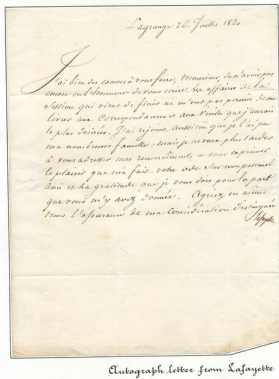 Lagrange 26 Juillet 1820
J'ai bien des excuses à vous faire, Monsieur, de n'avoir pas
encore eu l'honneur de vous écrire. Les affaires de la
Session qui vient de finir ne m'ont pas permis de me
livrer aux Correspondances aux que j'aurais
le plus désirées. J'ai rejoint aussitôt que je l'ai pu
ma nombreuse famille, mais je ne veux plus tarder
à vous adresser mes remerciements et vous exprimer
le plaisir que m'a fait votre ode
ami et la gratitude que je vous dois pour la part
que vous m'y avez donnée. Agréez en même
tems l'assurance de ma Considération Distinguée
Lafayette
Autograph letter from Lafayette